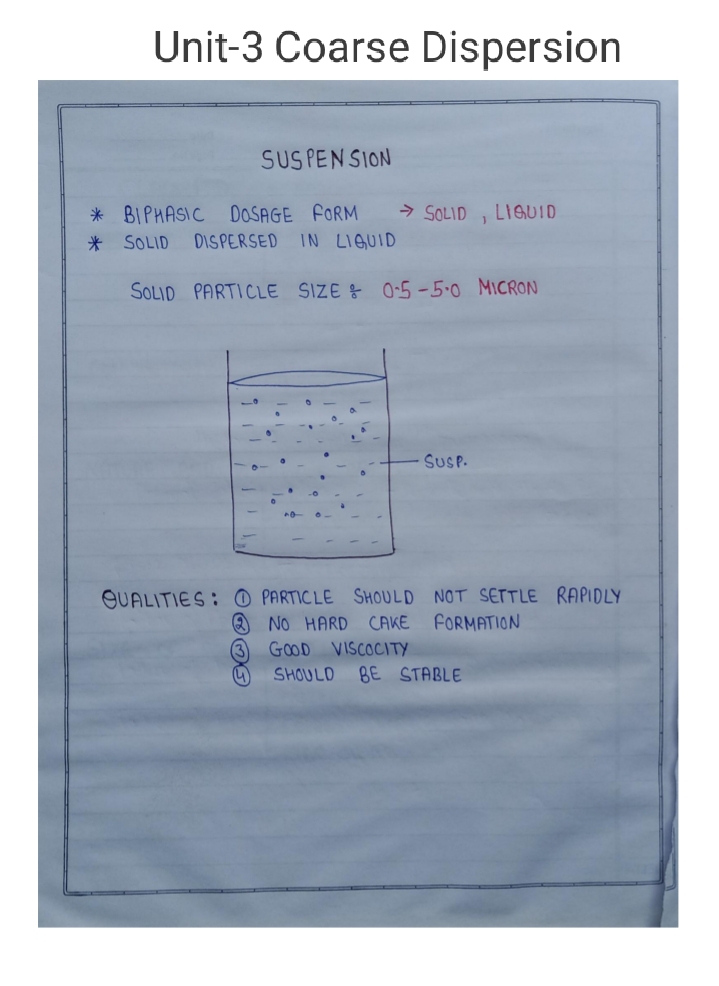 Unit-3 Coarse Dispersion
SUSPENSION
* BIPHASIC DOSAGE FORM → SOLID , LIQUID
* SOLID DISPERSED IN LIQUID
SOLID PARTICLE SIZE : 0.5-5.0 MICRON
SUSP.
QUALITIES : ① PARTICLE SHOULD NOT SETTLE RAPIDLY
② NO HARD CAKE FORMATION
③ GOOD VISCOCITY
④ SHOULD BE STABLE